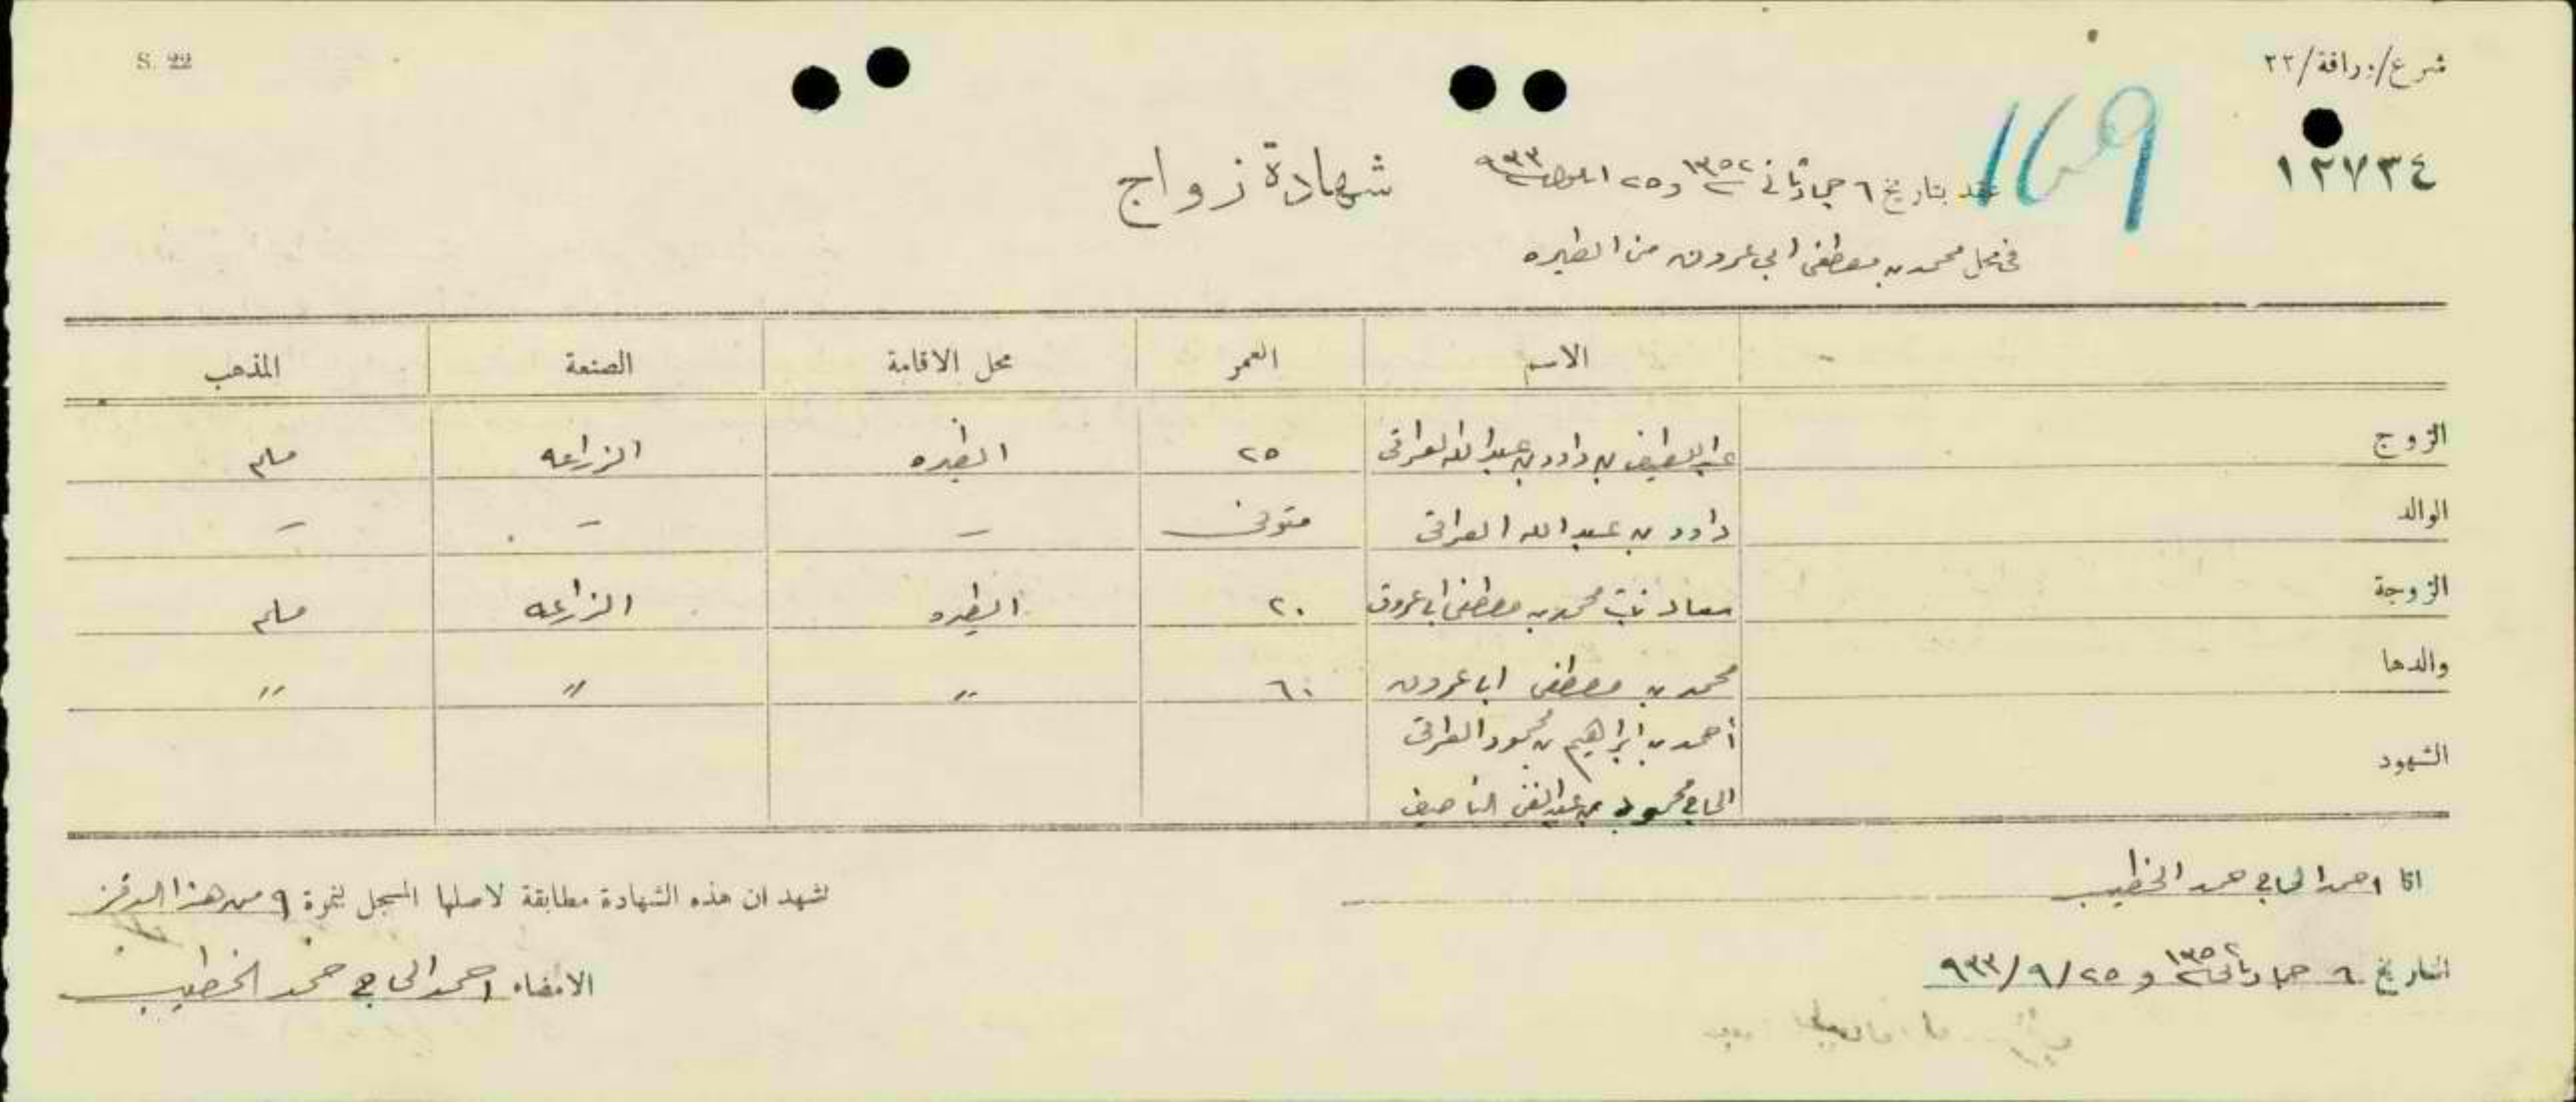 S. 22
شرع/وراقة/٢٢
١٢٧٣٤
169
شهادة زواج
عقد بتاريخ ٦ جماد ثاني سنة ١٣٥٢ و ٢٥ ايلول سنة ٩٣٣
في محل محمد بن مصطفى ابي عروق من الطيره
الاسم العمر محل الاقامة الصنعة المذهب
الزوج عبد اللطيف بن داود بن عبد الله العراقي ٢٥ الطيره الزراعه مسلم
الوالد داود بن عبد الله العراقي متوفى – – –
الزوجة سعاد بنت محمد بن مصطفى ابا عروق ٢٠ الطيره الزراعه مسلم
والدها محمد بن مصطفى ابا عروق ٦٠ " " "
الشهود أحمد بن ابراهيم بن محمود العراقي
الحاج محمود بن عبد الغني الناصيف
انا احمد الحاج حمد الخطيب
نشهد ان هذه الشهادة مطابقة لاصلها المسجل بنمرة ٩ من هذا الدفتر
التاريخ ٦ جماد ثاني سنة ١٣٥٢ و ٢٥/٩/٩٣٣
الامضاء احمد الحاج حمد الخطيب